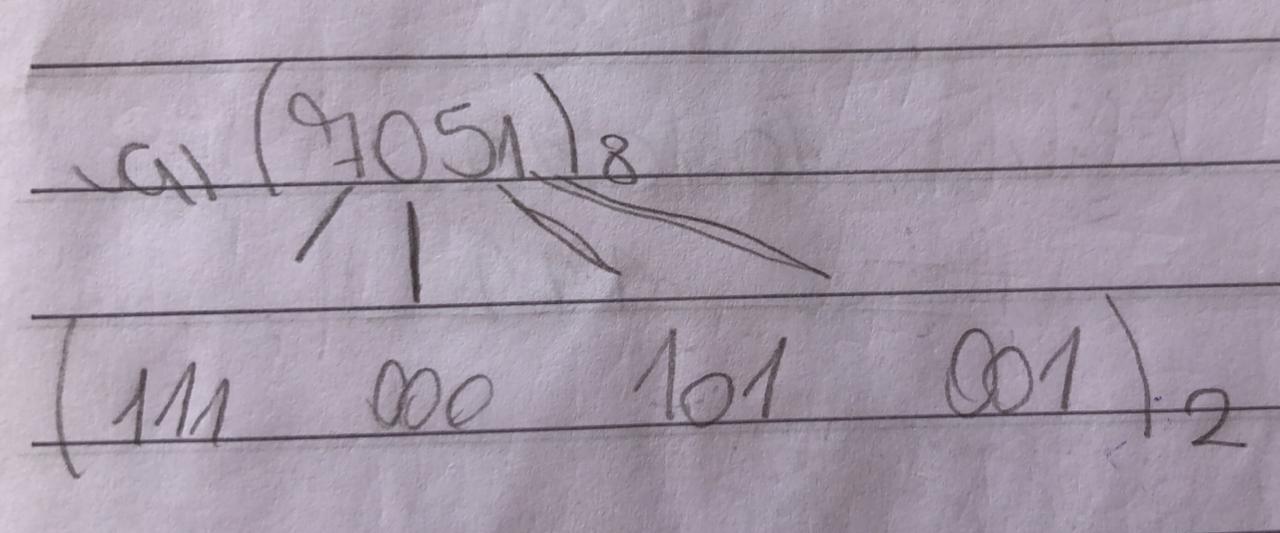 a) (7051)8
(111 000 101 001)2